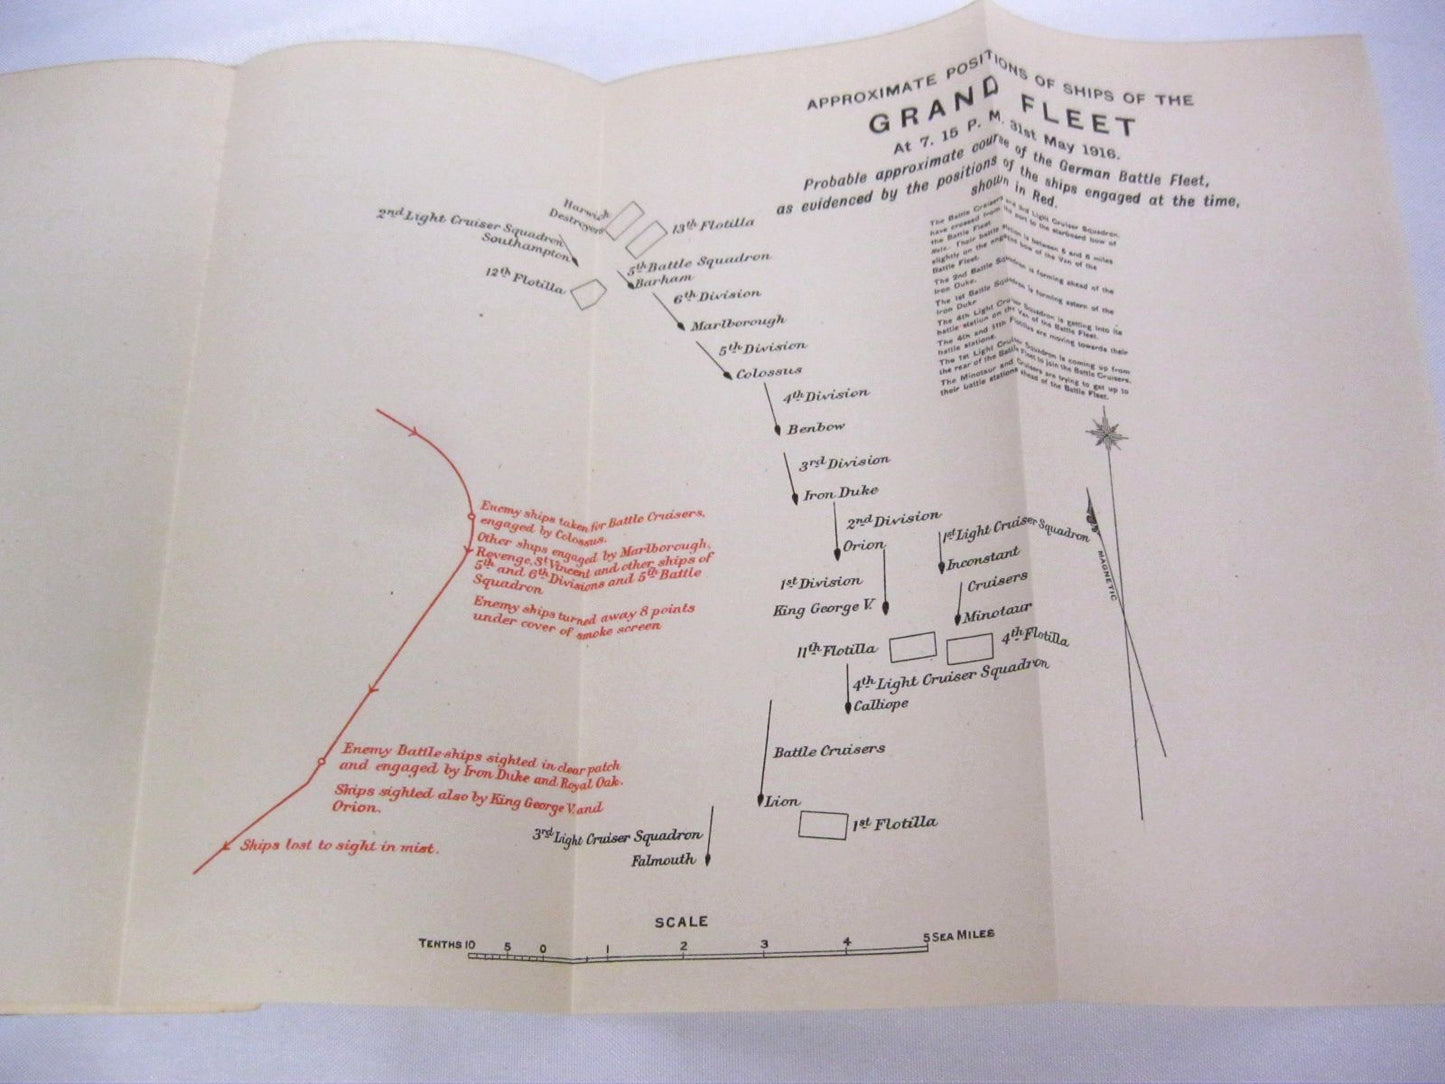 APPROXIMATE POSITIONS OF SHIPS OF THE
GRAND FLEET
At 7. 15 P. M. 31st May 1916.
Probable approximate course of the German Battle Fleet,
as evidenced by the positions of the ships engaged at the time,
shown in Red.
The Battle Cruisers and 3rd Light Cruiser Squadron
have crossed from the port to the starboard bow of
the Battle Fleet
Note. Their battle station is between 5 and 6 miles
slightly on the engaged bow of the Van of the
Battle Fleet.
The 2nd Battle Squadron is forming ahead of the
Iron Duke.
The 1st Battle Squadron is forming astern of the
Iron Duke
The 4th Light Cruiser Squadron is getting into its
battle station on the Van of the Battle Fleet.
The 4th and 11th Flotillas are moving towards their
battle stations.
The 1st Light Cruiser Squadron is coming up from
the rear of the Battle Fleet to join the Battle Cruisers.
The Minotaur and Cruisers are trying to get up to
their battle stations ahead of the Battle Fleet.
Harwich
Destroyers
13th Flotilla
2nd Light Cruiser Squadron
Southampton
12th Flotilla
5th Battle Squadron
Barham
6th Division
Marlborough
5th Division
Colossus
4th Division
Benbow
3rd Division
Iron Duke
2nd Division
Orion
1st Light Cruiser Squadron
Inconstant
1st Division
King George V.
Cruisers
Minotaur
11th Flotilla
4th Flotilla
4th Light Cruiser Squadron
Calliope
MAGNETIC
Battle Cruisers
Lion
1st Flotilla
3rd Light Cruiser Squadron
Falmouth
Enemy ships taken for Battle Cruisers,
engaged by Colossus.
Other ships engaged by Marlborough,
Revenge, St Vincent and other ships of
5th and 6th Divisions and 5th Battle
Squadron
Enemy ships turned away 8 points
under cover of smoke screen
Enemy Battle-ships sighted in clear patch
and engaged by Iron Duke and Royal Oak.
Ships sighted also by King George V. and
Orion.
Ships lost to sight in mist.
SCALE
TENTHS 10 5 0 1 2 3 4 5 SEA MILES